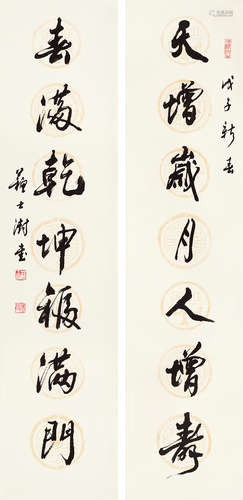 戊子新春
天增歲月人增壽
春滿乾坤福滿門
蘇士澍書